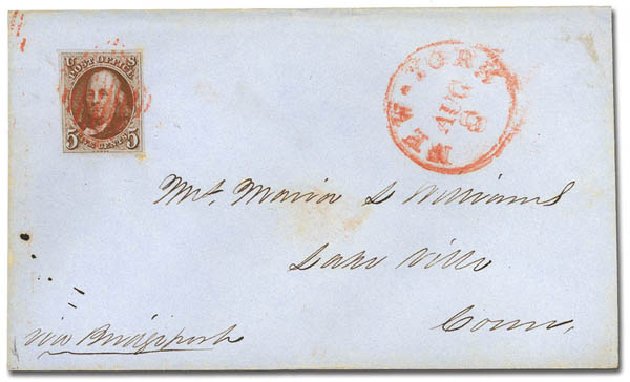 U S
POST OFFICE
5 FIVE CENTS 5
NEW-YORK
AUG
Mrs. Maria L Williams
Lake Ville
Conn.
via Bridgeport